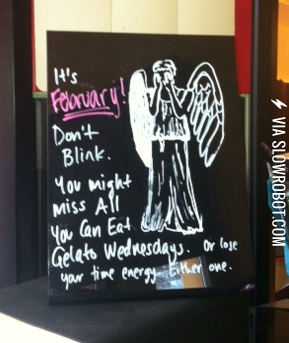 It's
February!
Don't
Blink.
You might
miss All
You Can Eat
Gelato Wednesdays. Or lose
your time energy. Either one.
VIA SLOWROBOT.COM